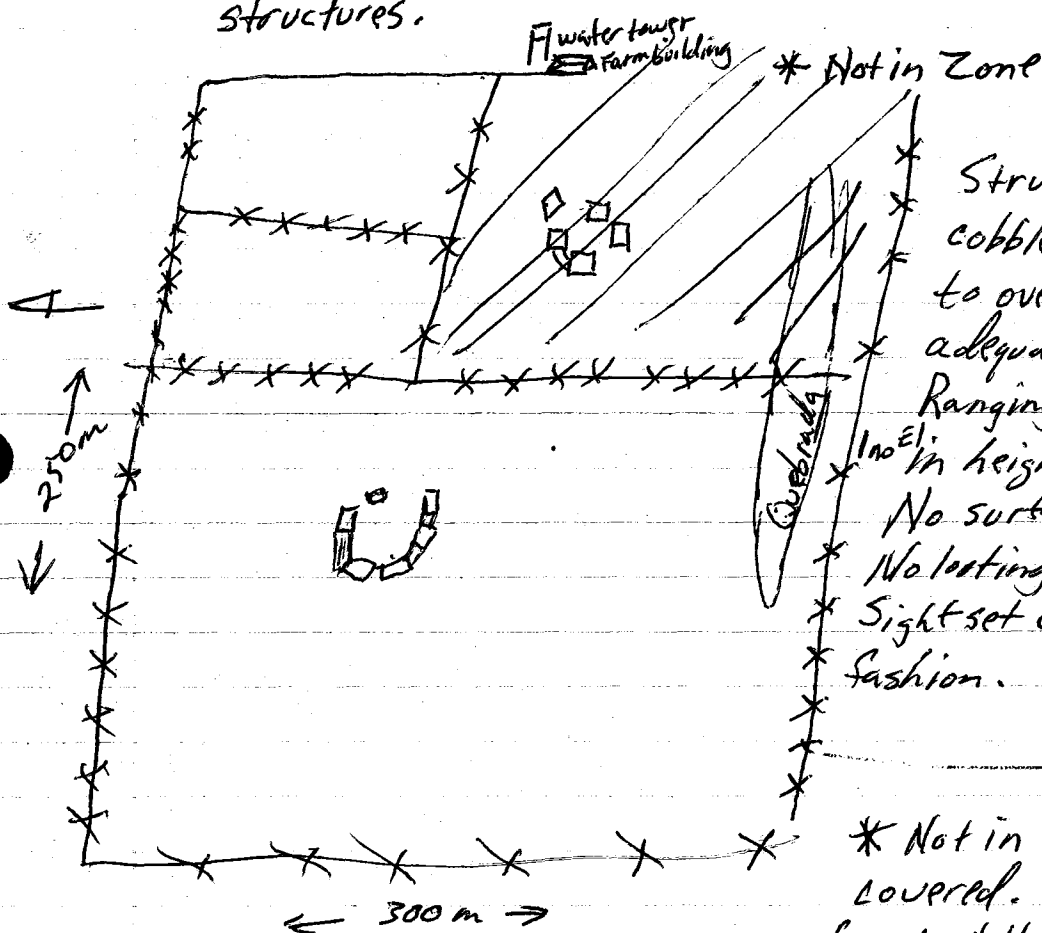 structures.
water tower
Farm building
* Not in Zone
Stru
cobble
to ove
adequa
Ranging
in heigh
No surf
No looting
Sight set
fashion.
250m
Quebrada
300m
* Not in
covered.